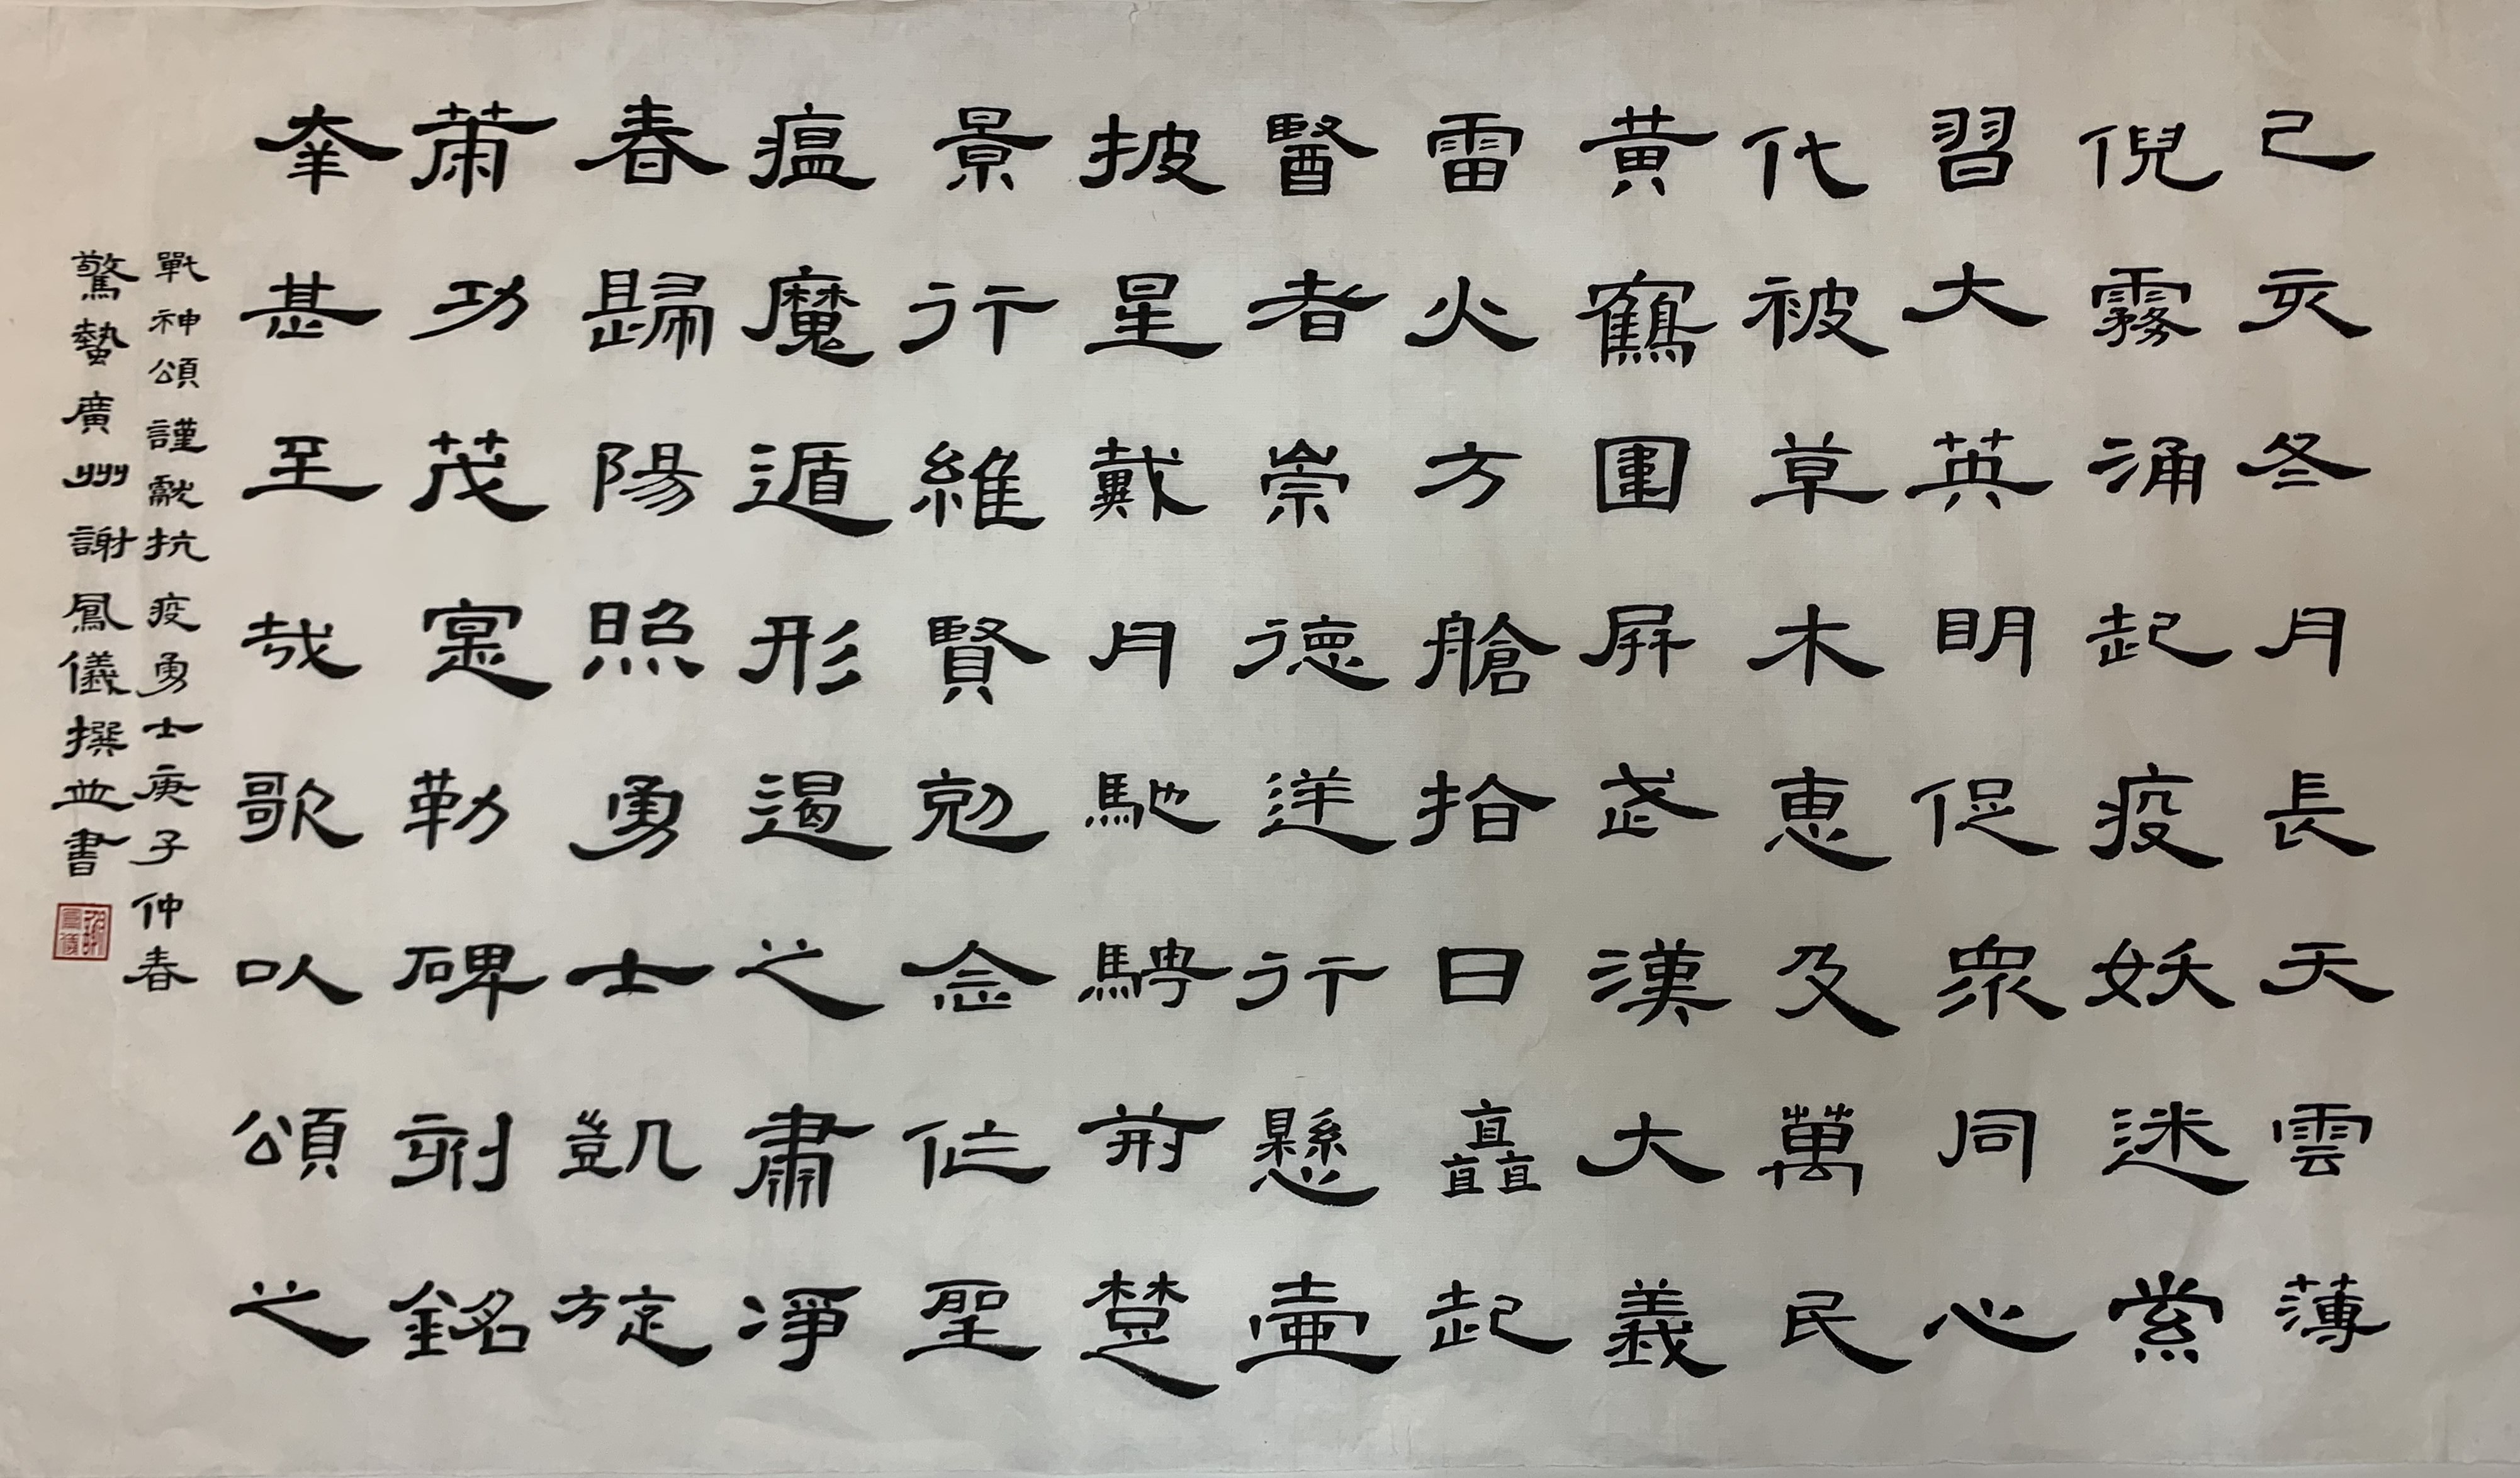 己亥冬月長天雲薄
倪霧涌起疫妖迷
習大英明促眾同心
代被草木惠及萬民
黃鶴圍屏武漢大義
雷火方艙拾日矗起
醫者崇德逆行懸壺
披星戴月馳騁荊楚
景行維賢剋念作聖
瘟魔遁形遏之肅淨
春歸陽照勇士凱旋
策功茂寔勒碑刻銘
幸甚至哉歌以頌之
戰神頌謹獻抗疫勇士庚子仲春
驚蟄廣州謝鳳儀撰並書
謝鳳儀